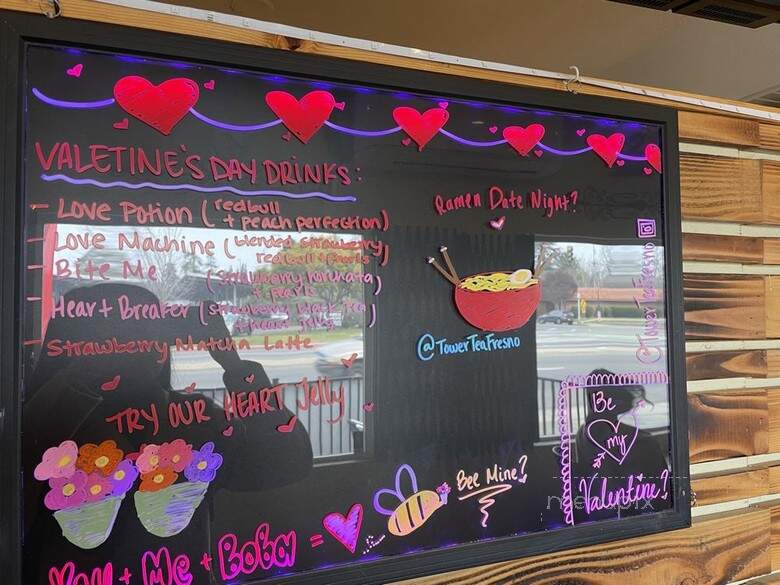 VALETINE'S DAY DRINKS:
- Love Potion (redbull + peach perfection)
- Love Machine (blended strawberry redbull + pearls)
- Bite Me (strawberry horchata + pearls)
- Heart Breaker (strawberry black tea + heart jelly)
- Strawberry Matcha Latte
TRY OUR HEART Jelly
You + Me + Boba =
Ramen Date Night?
@TowerTeaFresno
Bee Mine?
@TowerTeaFresno
Be
my
Valentine?
menupix